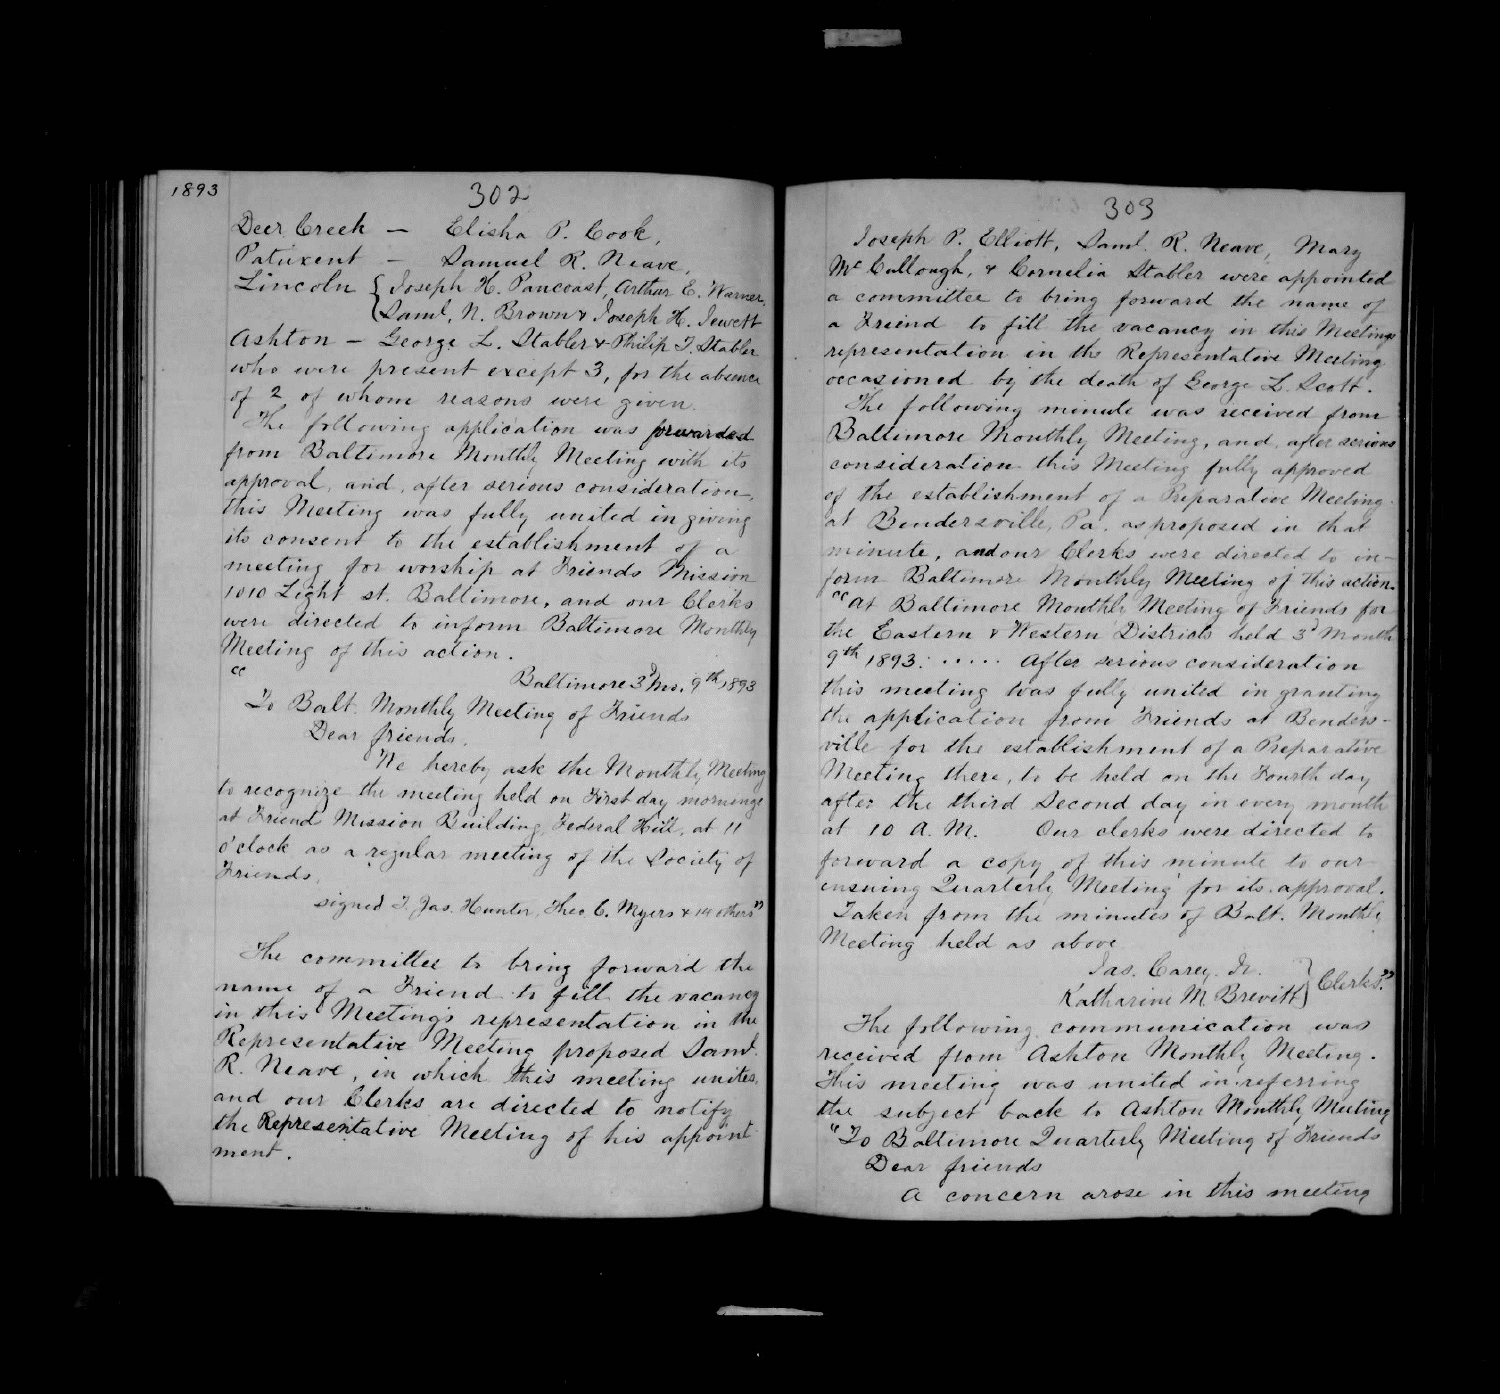 1893
302
Deer Creek — Elisha P. Cook,
Patuxent — Samuel R. Neave,
Lincoln { Joseph H. Pancoast, Arthur E. Warner,
Saml. N. Brown & Joseph H. Jewett
Ashton — George L. Stabler & Philip T. Stabler
who were present except 3, for the absence
of 2 of whom reasons were given.
The following application was forwarded
from Baltimore Monthly Meeting with its
approval, and, after serious consideration,
this Meeting was fully united in giving
its consent to the establishment of a
meeting for worship at Friends Mission
1010 Light st. Baltimore, and our Clerks
were directed to inform Baltimore Monthly
Meeting of this action.
" Baltimore 3d mo. 9th 1893
To Balt. Monthly Meeting of Friends
Dear friends,
We hereby ask the Monthly Meeting
to recognize the meeting held on First day mornings
at Friend Mission Building, Federal Hill, at 11
o'clock as a regular meeting of the Society of
Friends,
signed T. Jas. Hunter, Theo. C. Myers & 14 others"
The committee to bring forward the
name of a Friend to fill the vacancy
in this Meeting's representation in the
Representative Meeting proposed Saml.
R. Neave, in which this meeting unites,
and our Clerks are directed to notify
the Representative Meeting of his appoint
ment.
303
Joseph P. Elliott, Saml. R. Neave, Mary
McCullough, & Cornelia Stabler were appointed
a committee to bring forward the name of
a Freind to fill the vacancy in this Meetings
representation in the Representative Meeting
occasioned by the death of George L. Scott.
The following minute was received from
Baltimore Monthly Meeting, and, after serious
consideration this Meeting fully approved
of the establishment of a Preparative Meeting
at Bendersville, Pa. as proposed in that
minute, and our Clerks were directed to in-
form Baltimore Monthly Meeting of this action.
"At Baltimore Monthly Meeting of Friends for
the Eastern & Western Districts held 3d Month
9th 1893: ..... After serious consideration
this meeting was fully united in granting
the application from Friends at Benders-
ville for the establishment of a Preparative
Meeting there, to be held on the Fourth day
after the third Second day in every month
at 10 A.M. Our clerks were directed to
forward a copy of this minute to our
ensuing Quarterly Meeting for its approval.
Taken from the minutes of Balt. Monthly
Meeting held as above
Jas. Carey Jr.
Katharine M Brevitt } Clerks"
The following communication was
received from Ashton Monthly Meeting.
This meeting was united in referring
the subject back to Ashton Monthly Meeting
"To Baltimore Quarterly Meeting of Friends
Dear friends
A concern arose in this meeting